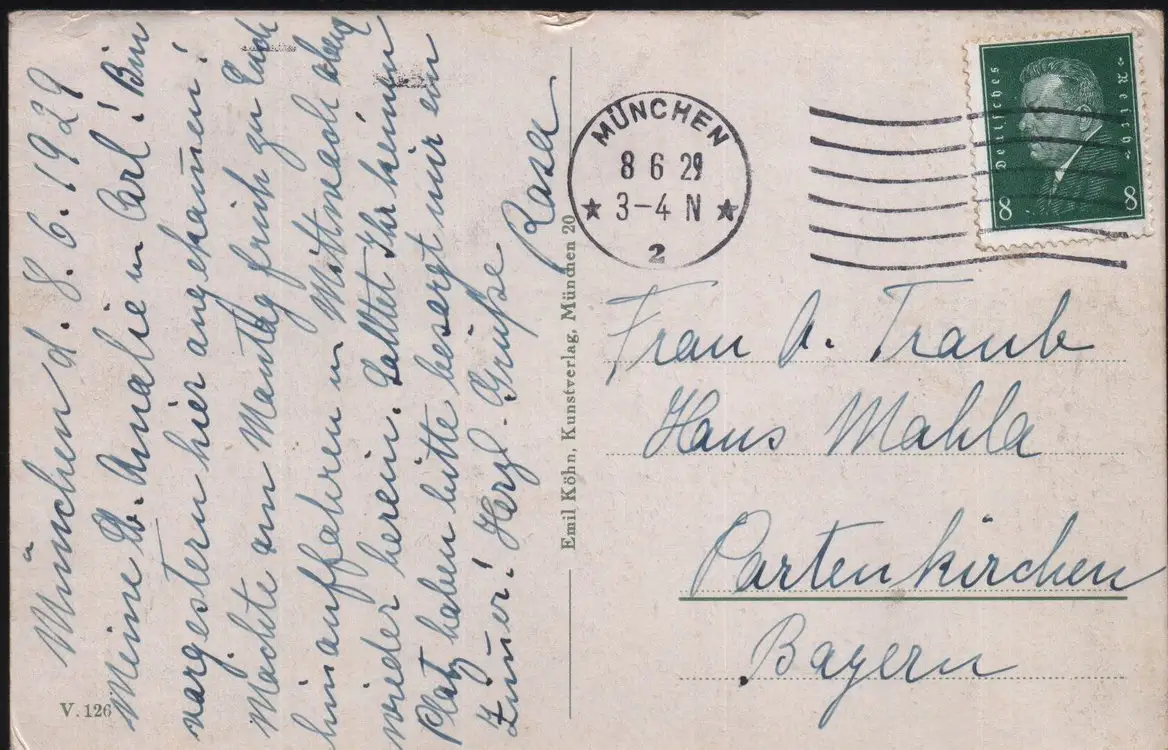 München d. 8. 6. 1929
Meine lb. Amalie u Carl! Bin
vorgestern hier angekom̄en!
Möchte am Montag früh zu Euch
hinauffahren u Mittwoch
wieder herein. Solltet Ihr keinen
Platz haben bitte besorgt mir ein
Zim̄er! Herzl. Grüße
Rosa
Emil Köhn, Kunstverlag, München 20
V. 126
MÜNCHEN
8 6 29
3-4 N
2
Deutsches Reich
8 8
Frau A. Traub
Haus Mahla
Partenkirchen
Bayern